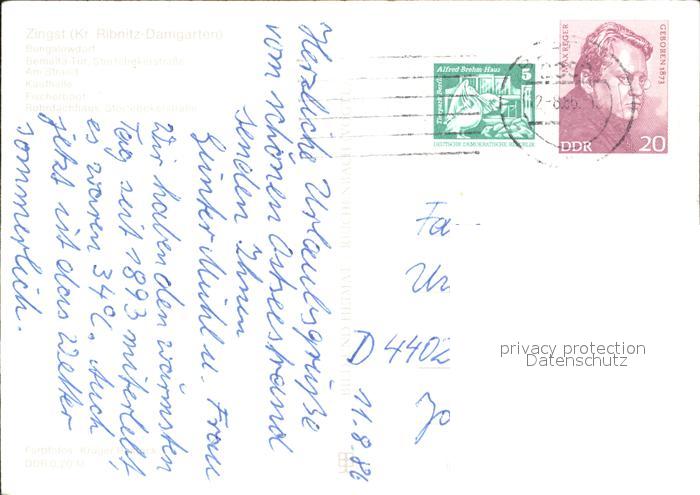 Zingst (Kr. Ribnitz-Damgarten)
Bungalowdorf
Bemalte Tür, Stortebekerstraße
Am Strand
Kaufhalle
Fischerboot
Rohrdachhaus, Stortebekerstraße
Herzliche Urlaubsgrüße
vom schönen Ostseestrand
senden Ihnen
Günter Mühl u. Frau
Wir haben den wärmsten
Tag seit 1893 miterlebt,
es waren 34°C. Auch
jetzt ist das Wetter
sommerlich.
Farbfotos:
DDR 0,20 M
BILD UND HEIMAT REICHENBACH
Alfred Brehm Haus
5
Tierpark Berlin
DEUTSCHE DEMOKRATISCHE REPUBLIK
MAX REGER
GEBOREN 1873
DDR
20
Fa
D 4402
11.8.86
privacy protection
Datenschutz